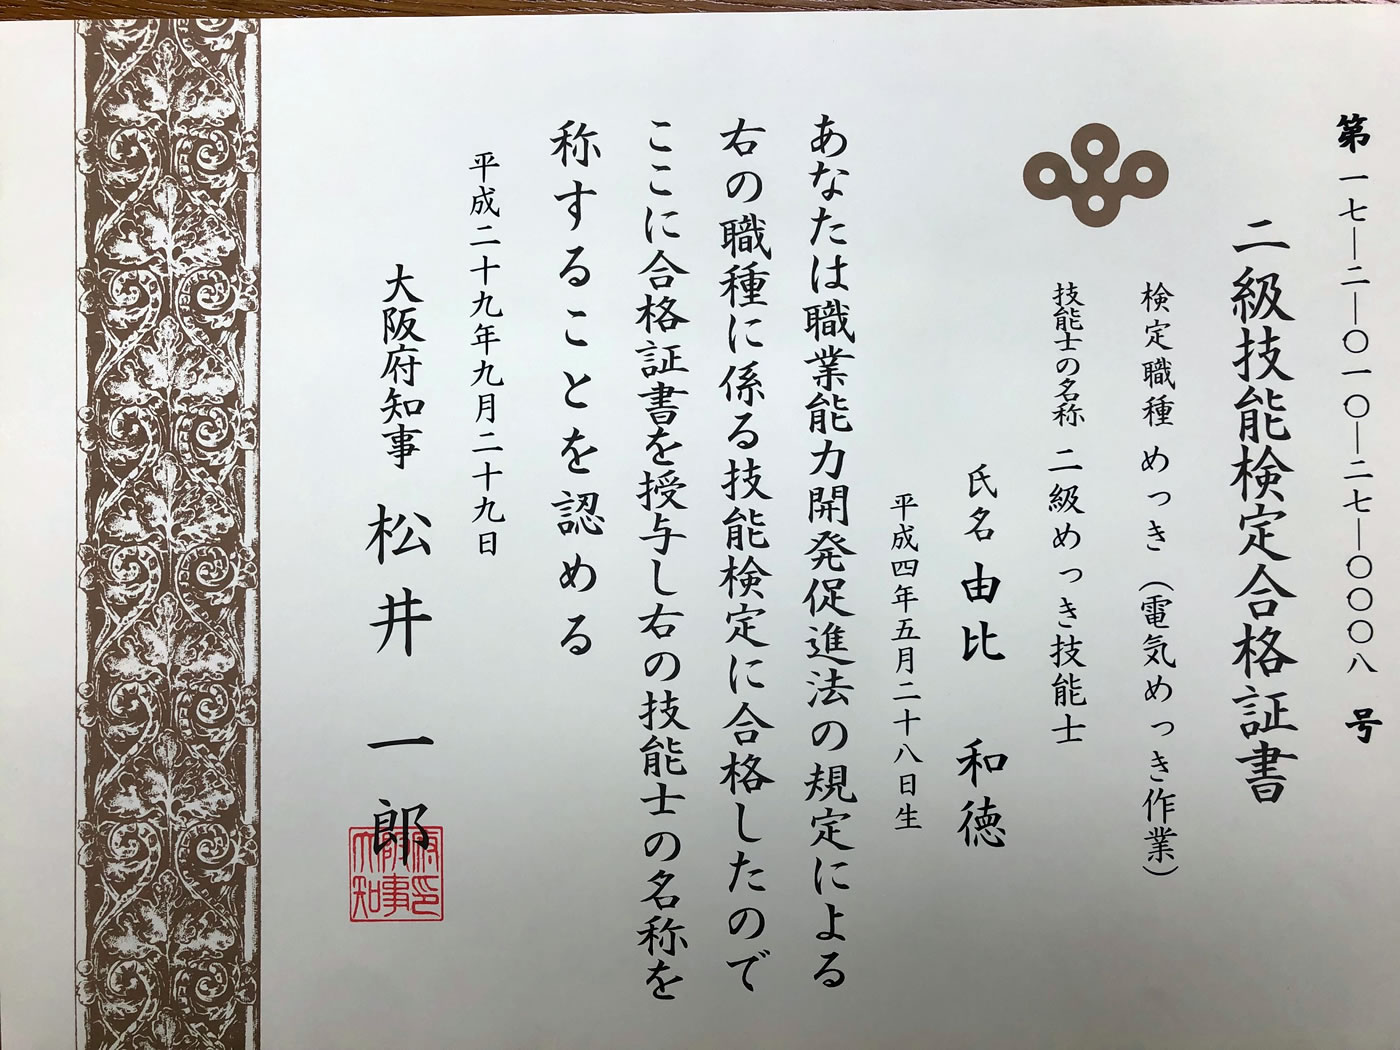 第一七―二―〇一〇―二七―〇〇〇八 号
二級技能検定合格証書
検定職種 めっき(電気めっき作業)
技能士の名称 二級めっき技能士
氏名 由比 和徳
平成四年五月二十八日生
あなたは職業能力開発促進法の規定による
右の職種に係る技能検定に合格したので
ここに合格証書を授与し右の技能士の名称を
称することを認める
平成二十九年九月二十九日
大阪府知事 松井 一郎